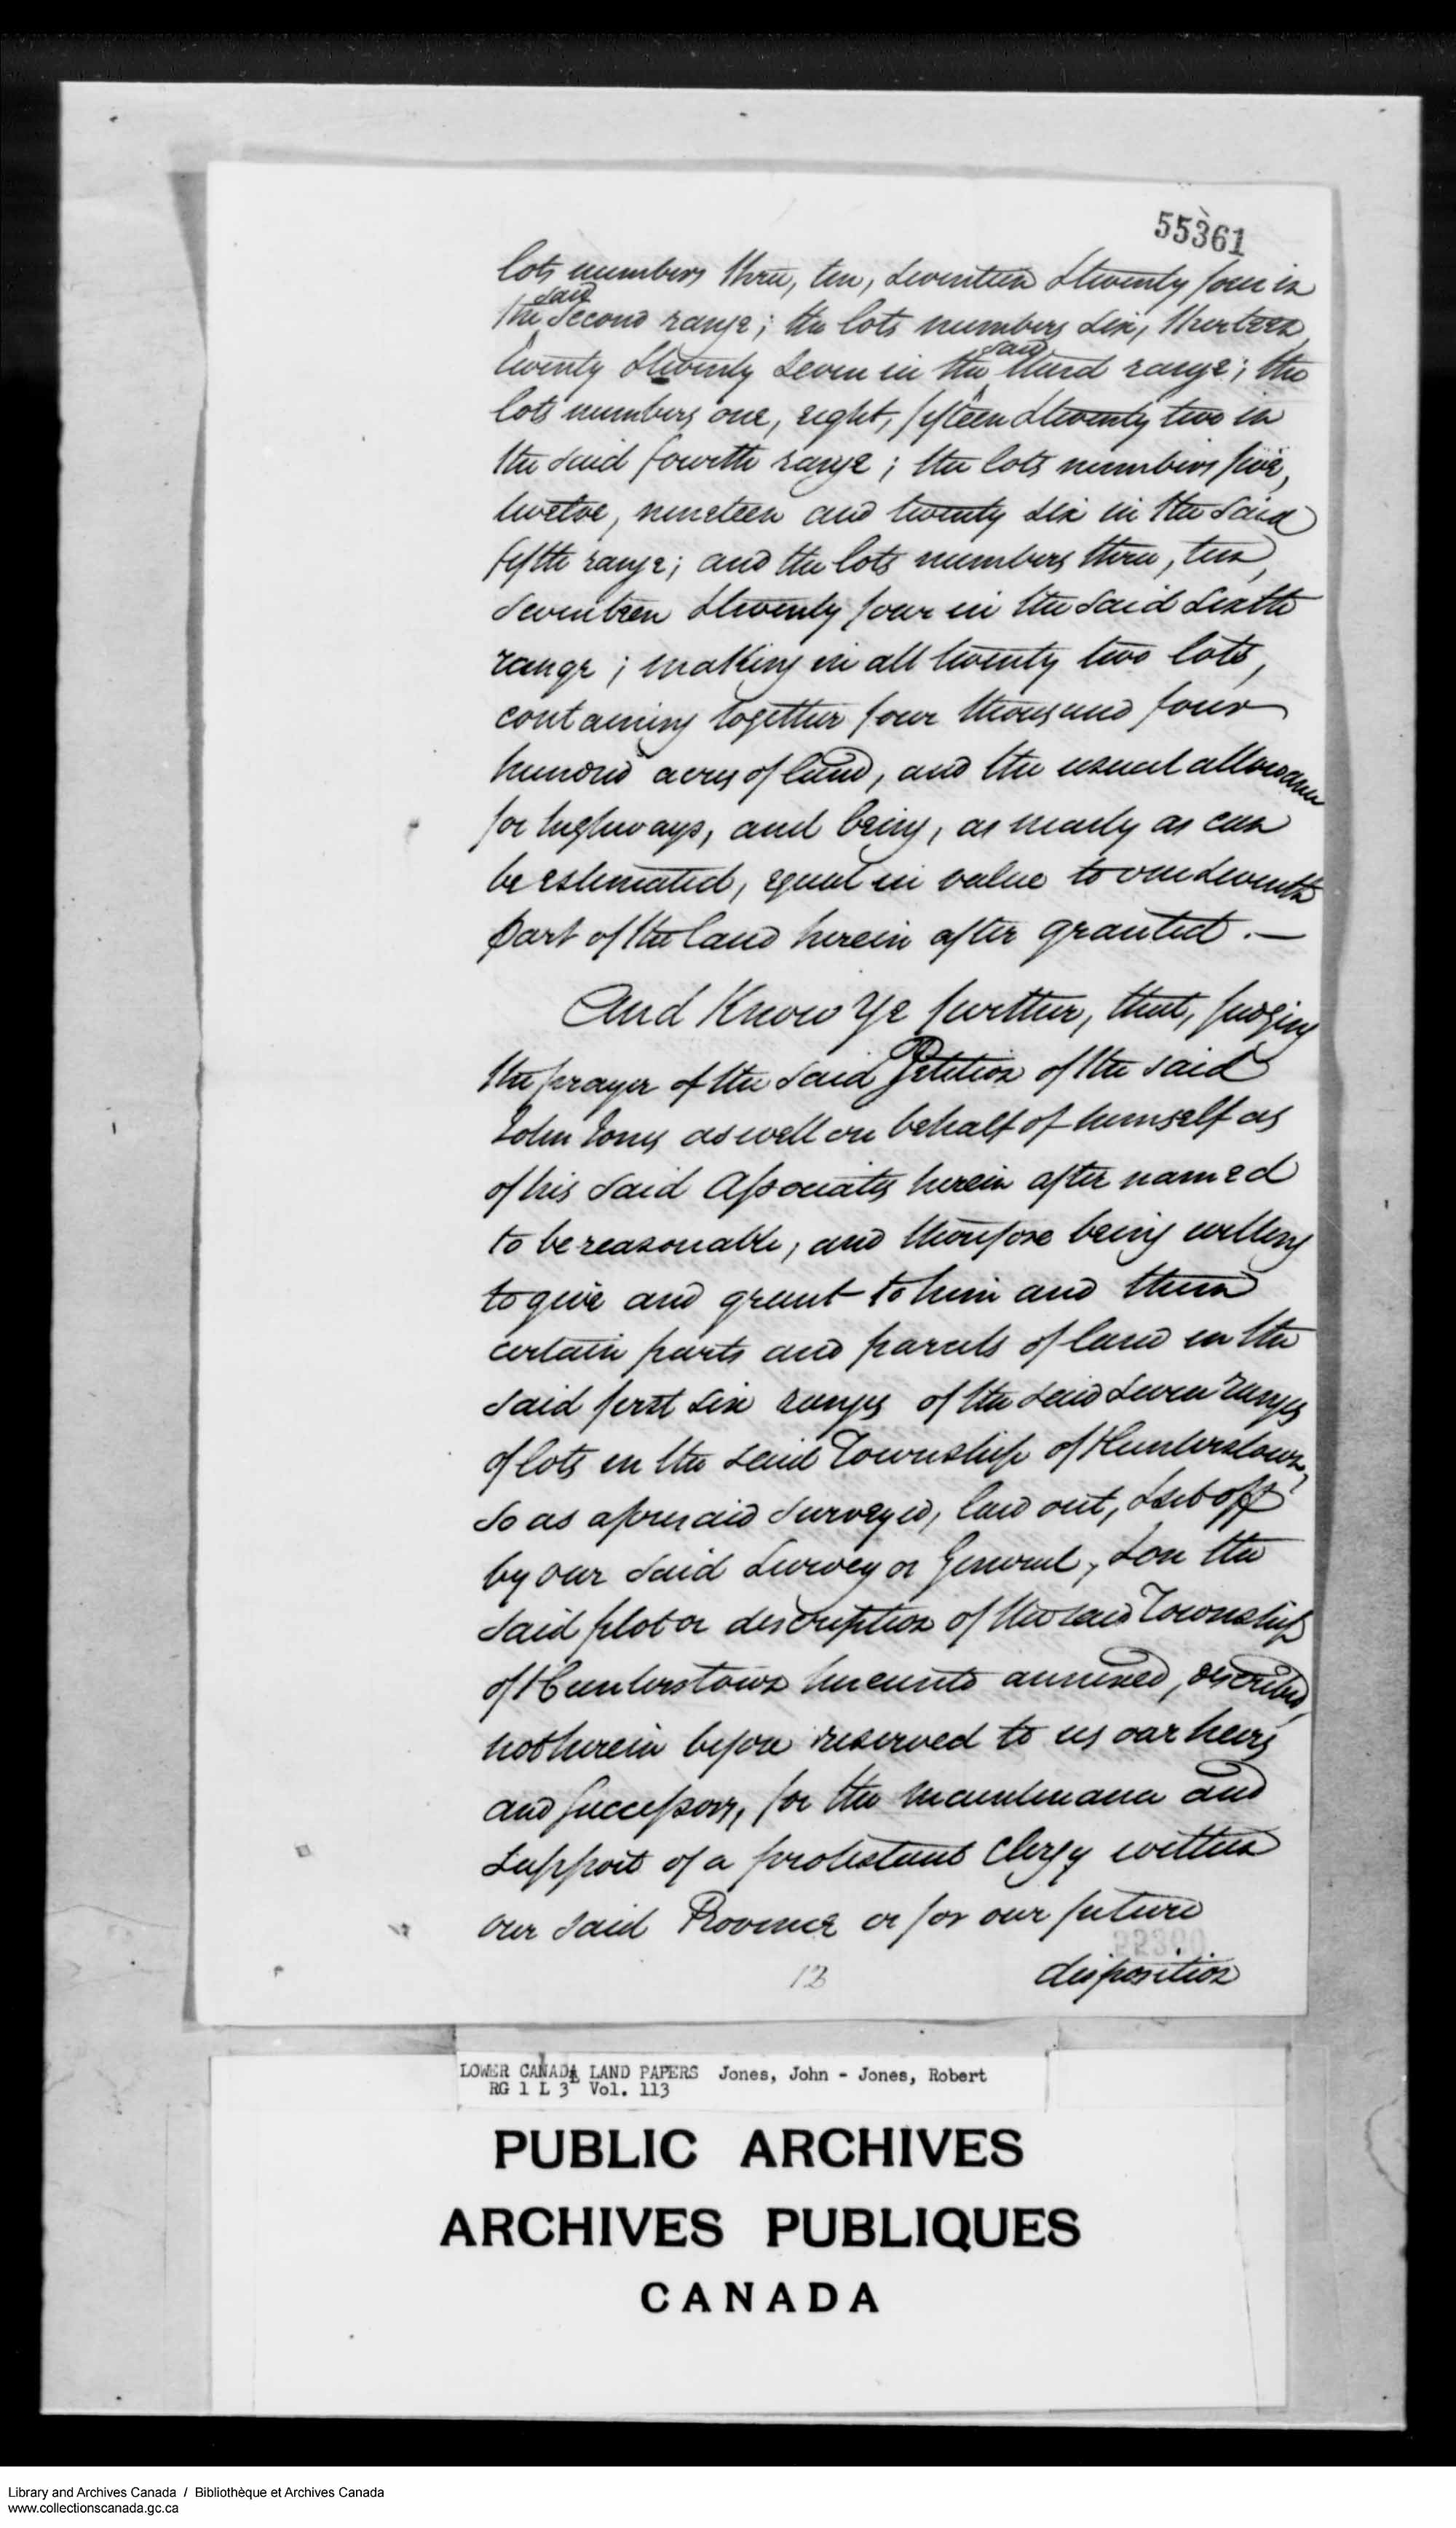 55361
lots numbers three, ten, seventeen & twenty four in
said
the second range; the lots numbers six, thirteen,
said
twenty & twenty seven in the third range; the
lots numbers one, eight, fifteen & twenty two in
the said fourth range; the lots numbers five,
twelve, nineteen and twenty six in the said
fifth range; and the lots numbers three, ten,
seventeen & twenty four in the said sixth
range; making in all twenty two lots,
containing together four thousand four
hundred acres of land, and the usual allowance
for highways, and being, as nearly as can
be estimated, equal in value to one seventh
part of the land herein after granted. —
And Know Ye further, that, judging
the prayer of the said Petition of the said
John Jones as well on behalf of himself as
of his said Associates herein after named
to be reasonable, and therefore being willing
to give and grant to him and them
certain parts and parcels of land in the
said first six ranges of the said seven ranges
of lots in the said Township of Hunterstown,
so as aforesaid surveyed, laid out, & set off
by our said Surveyor General, & on the
said plot or description of the said Township
of Hunterstown hereunto annexed, described,
not herein before reserved to us our heirs
and successors, for the maintenance and
support of a protestant Clergy within
our said Province or for our future
22300
disposition
12
LOWER CANADA LAND PAPERS Jones, John - Jones, Robert
RG 1 L 3 Vol. 113
PUBLIC ARCHIVES
ARCHIVES PUBLIQUES
CANADA
Library and Archives Canada / Bibliothèque et Archives Canada
www.collectionscanada.gc.ca